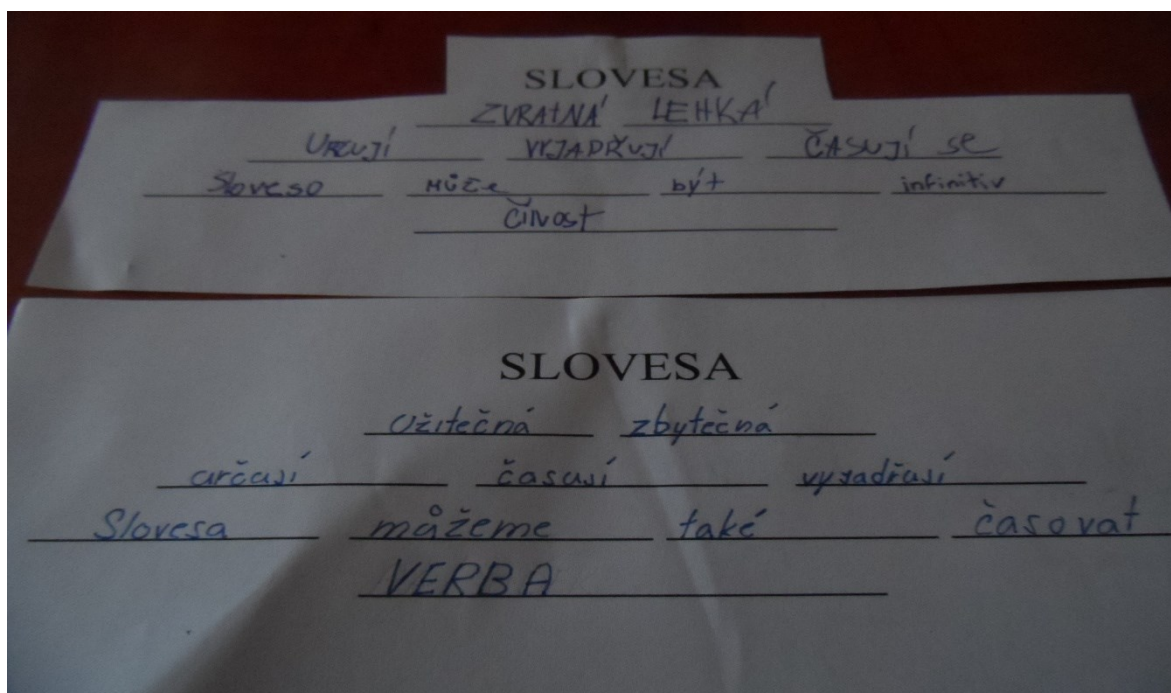 SLOVESA
ZVRATNÁ LEHKÁ
URČUJÍ VYJADŘUJÍ ČASUJÍ SE
Sloveso MŮŽE být infinitiv
ČINOST
SLOVESA
Užitečná zbytečná
určují časují vyjadřují
Slovesa můžeme také časovat
VERBA